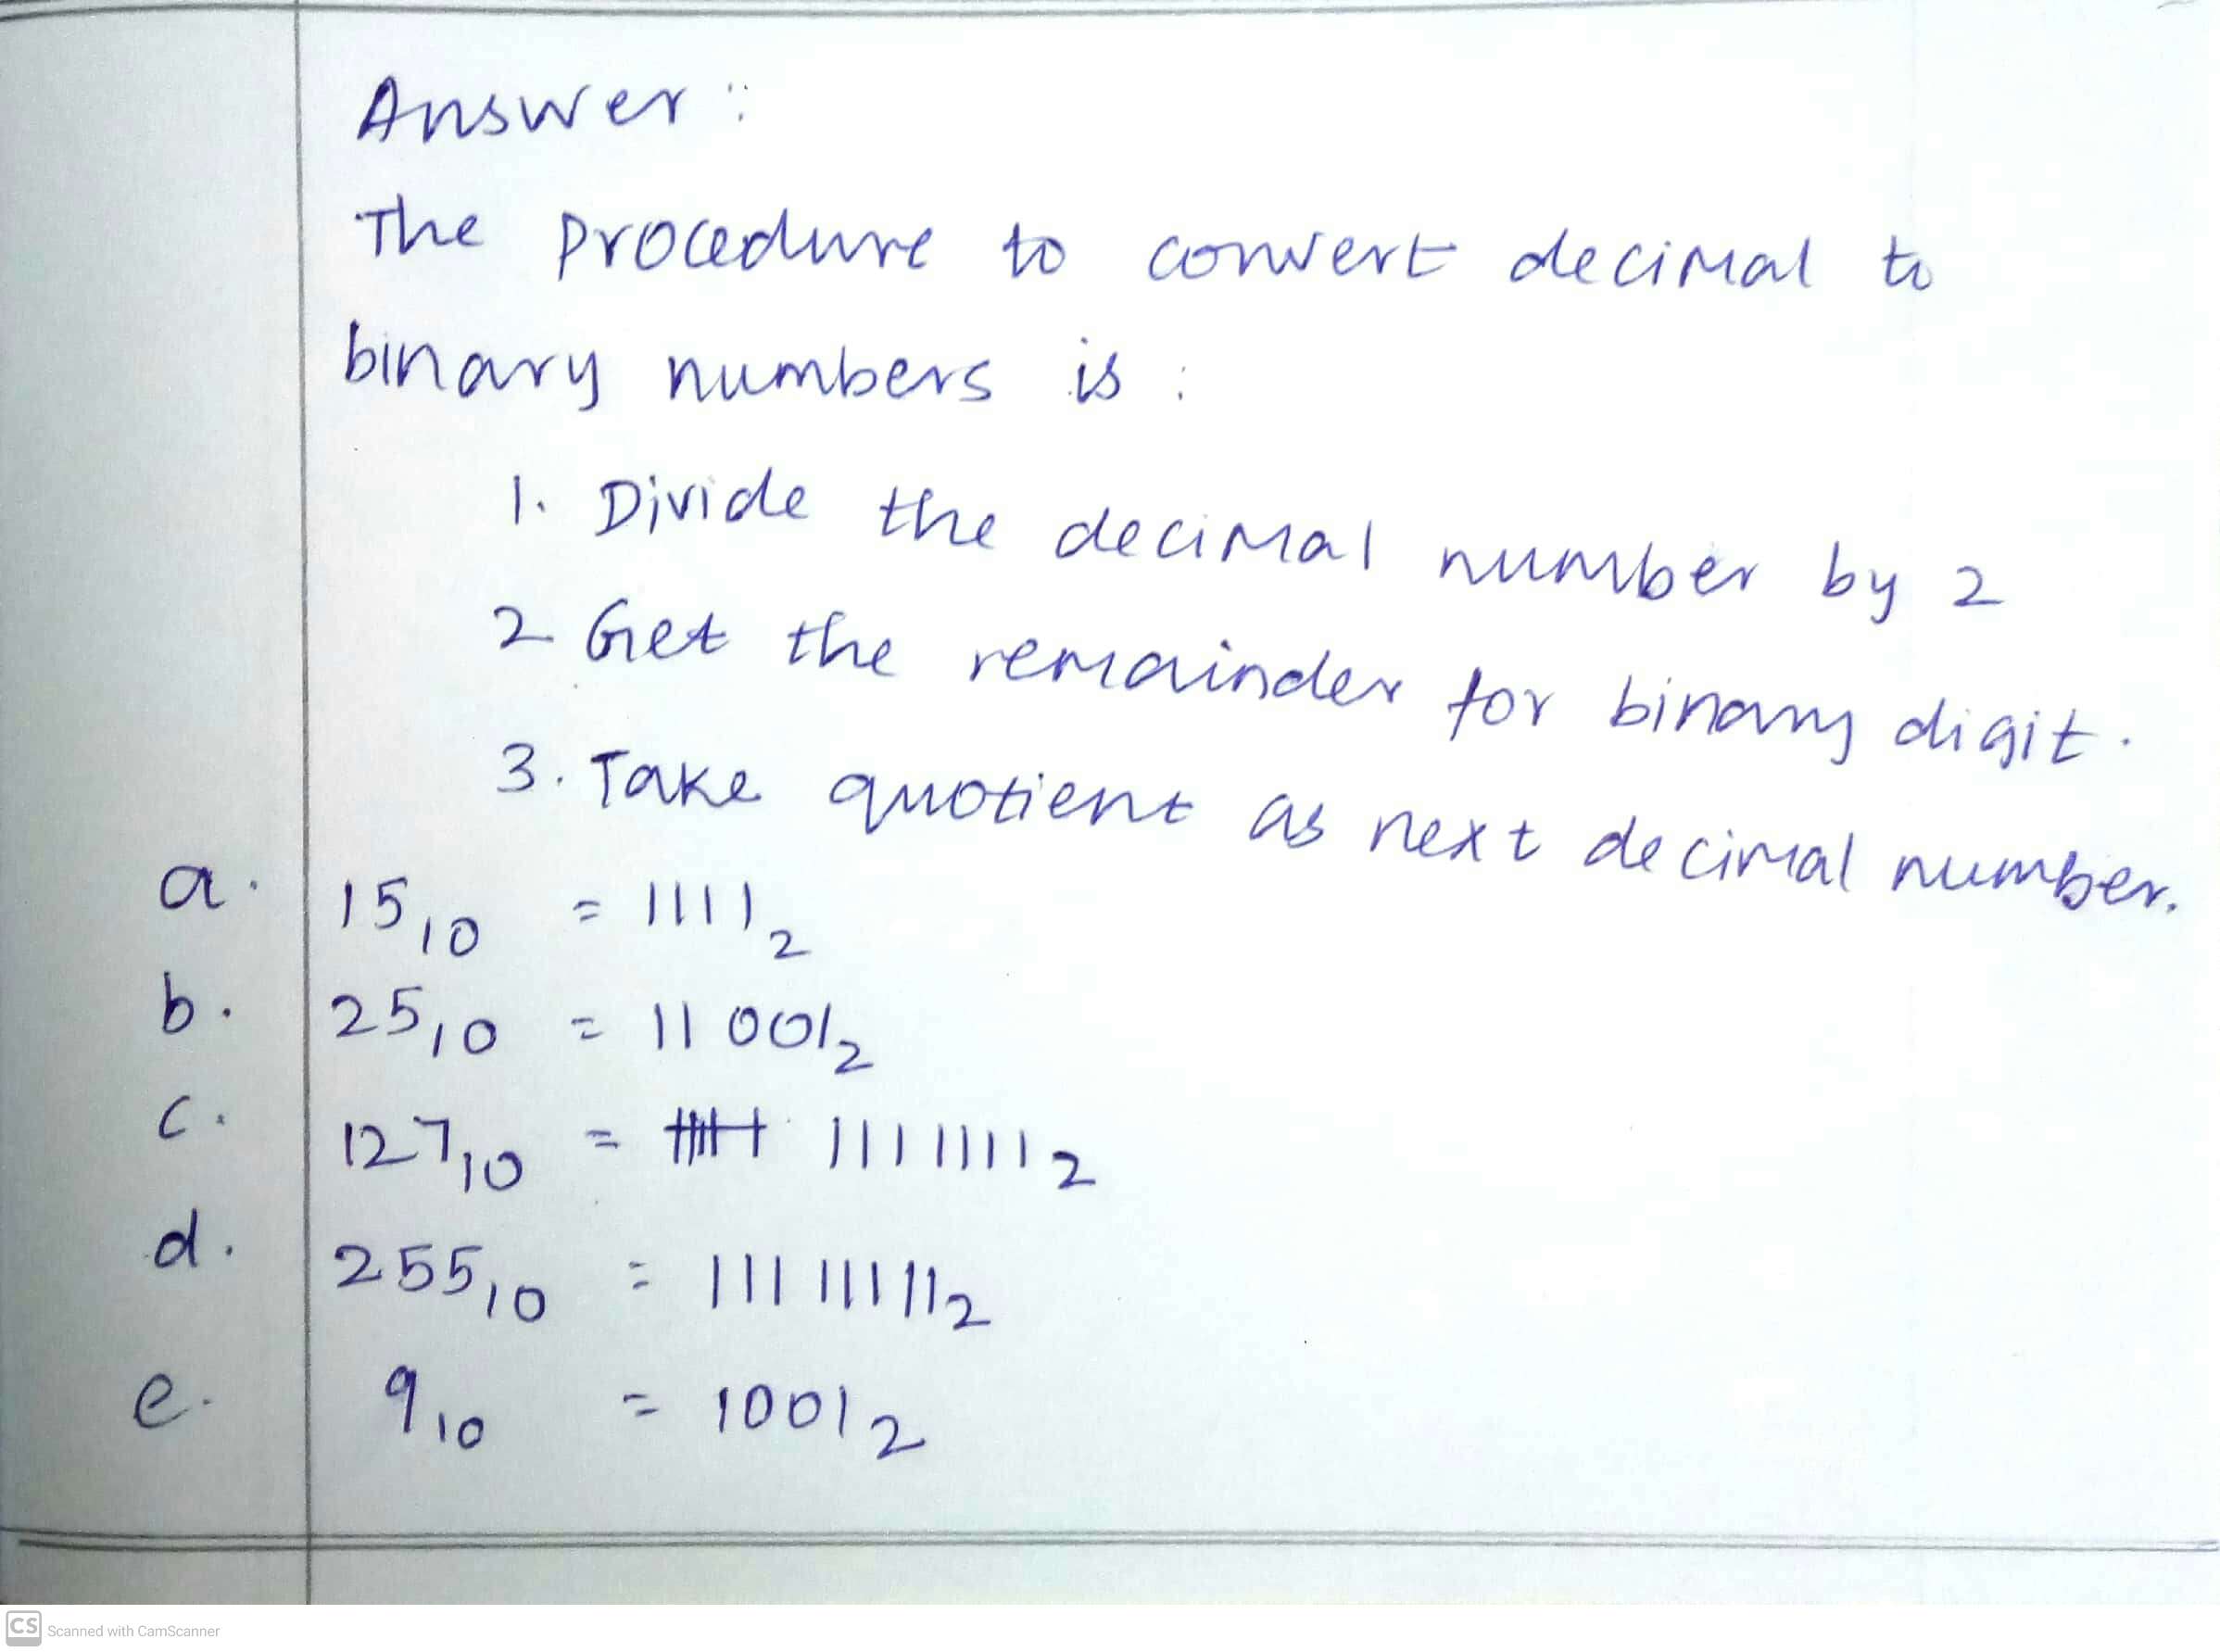 Answer :
The procedure to convert decimal to
binary numbers is :
1. Divide the decimal number by 2
2 Get the remainder for binary digit.
3. Take quotient as next decimal number.
a. 15₁₀ = 1111₂
b. 25₁₀ = 11001₂
c. 127₁₀ = 1111111₂
d. 255₁₀ = 11111111₂
e. 9₁₀ = 1001₂
CS Scanned with CamScanner